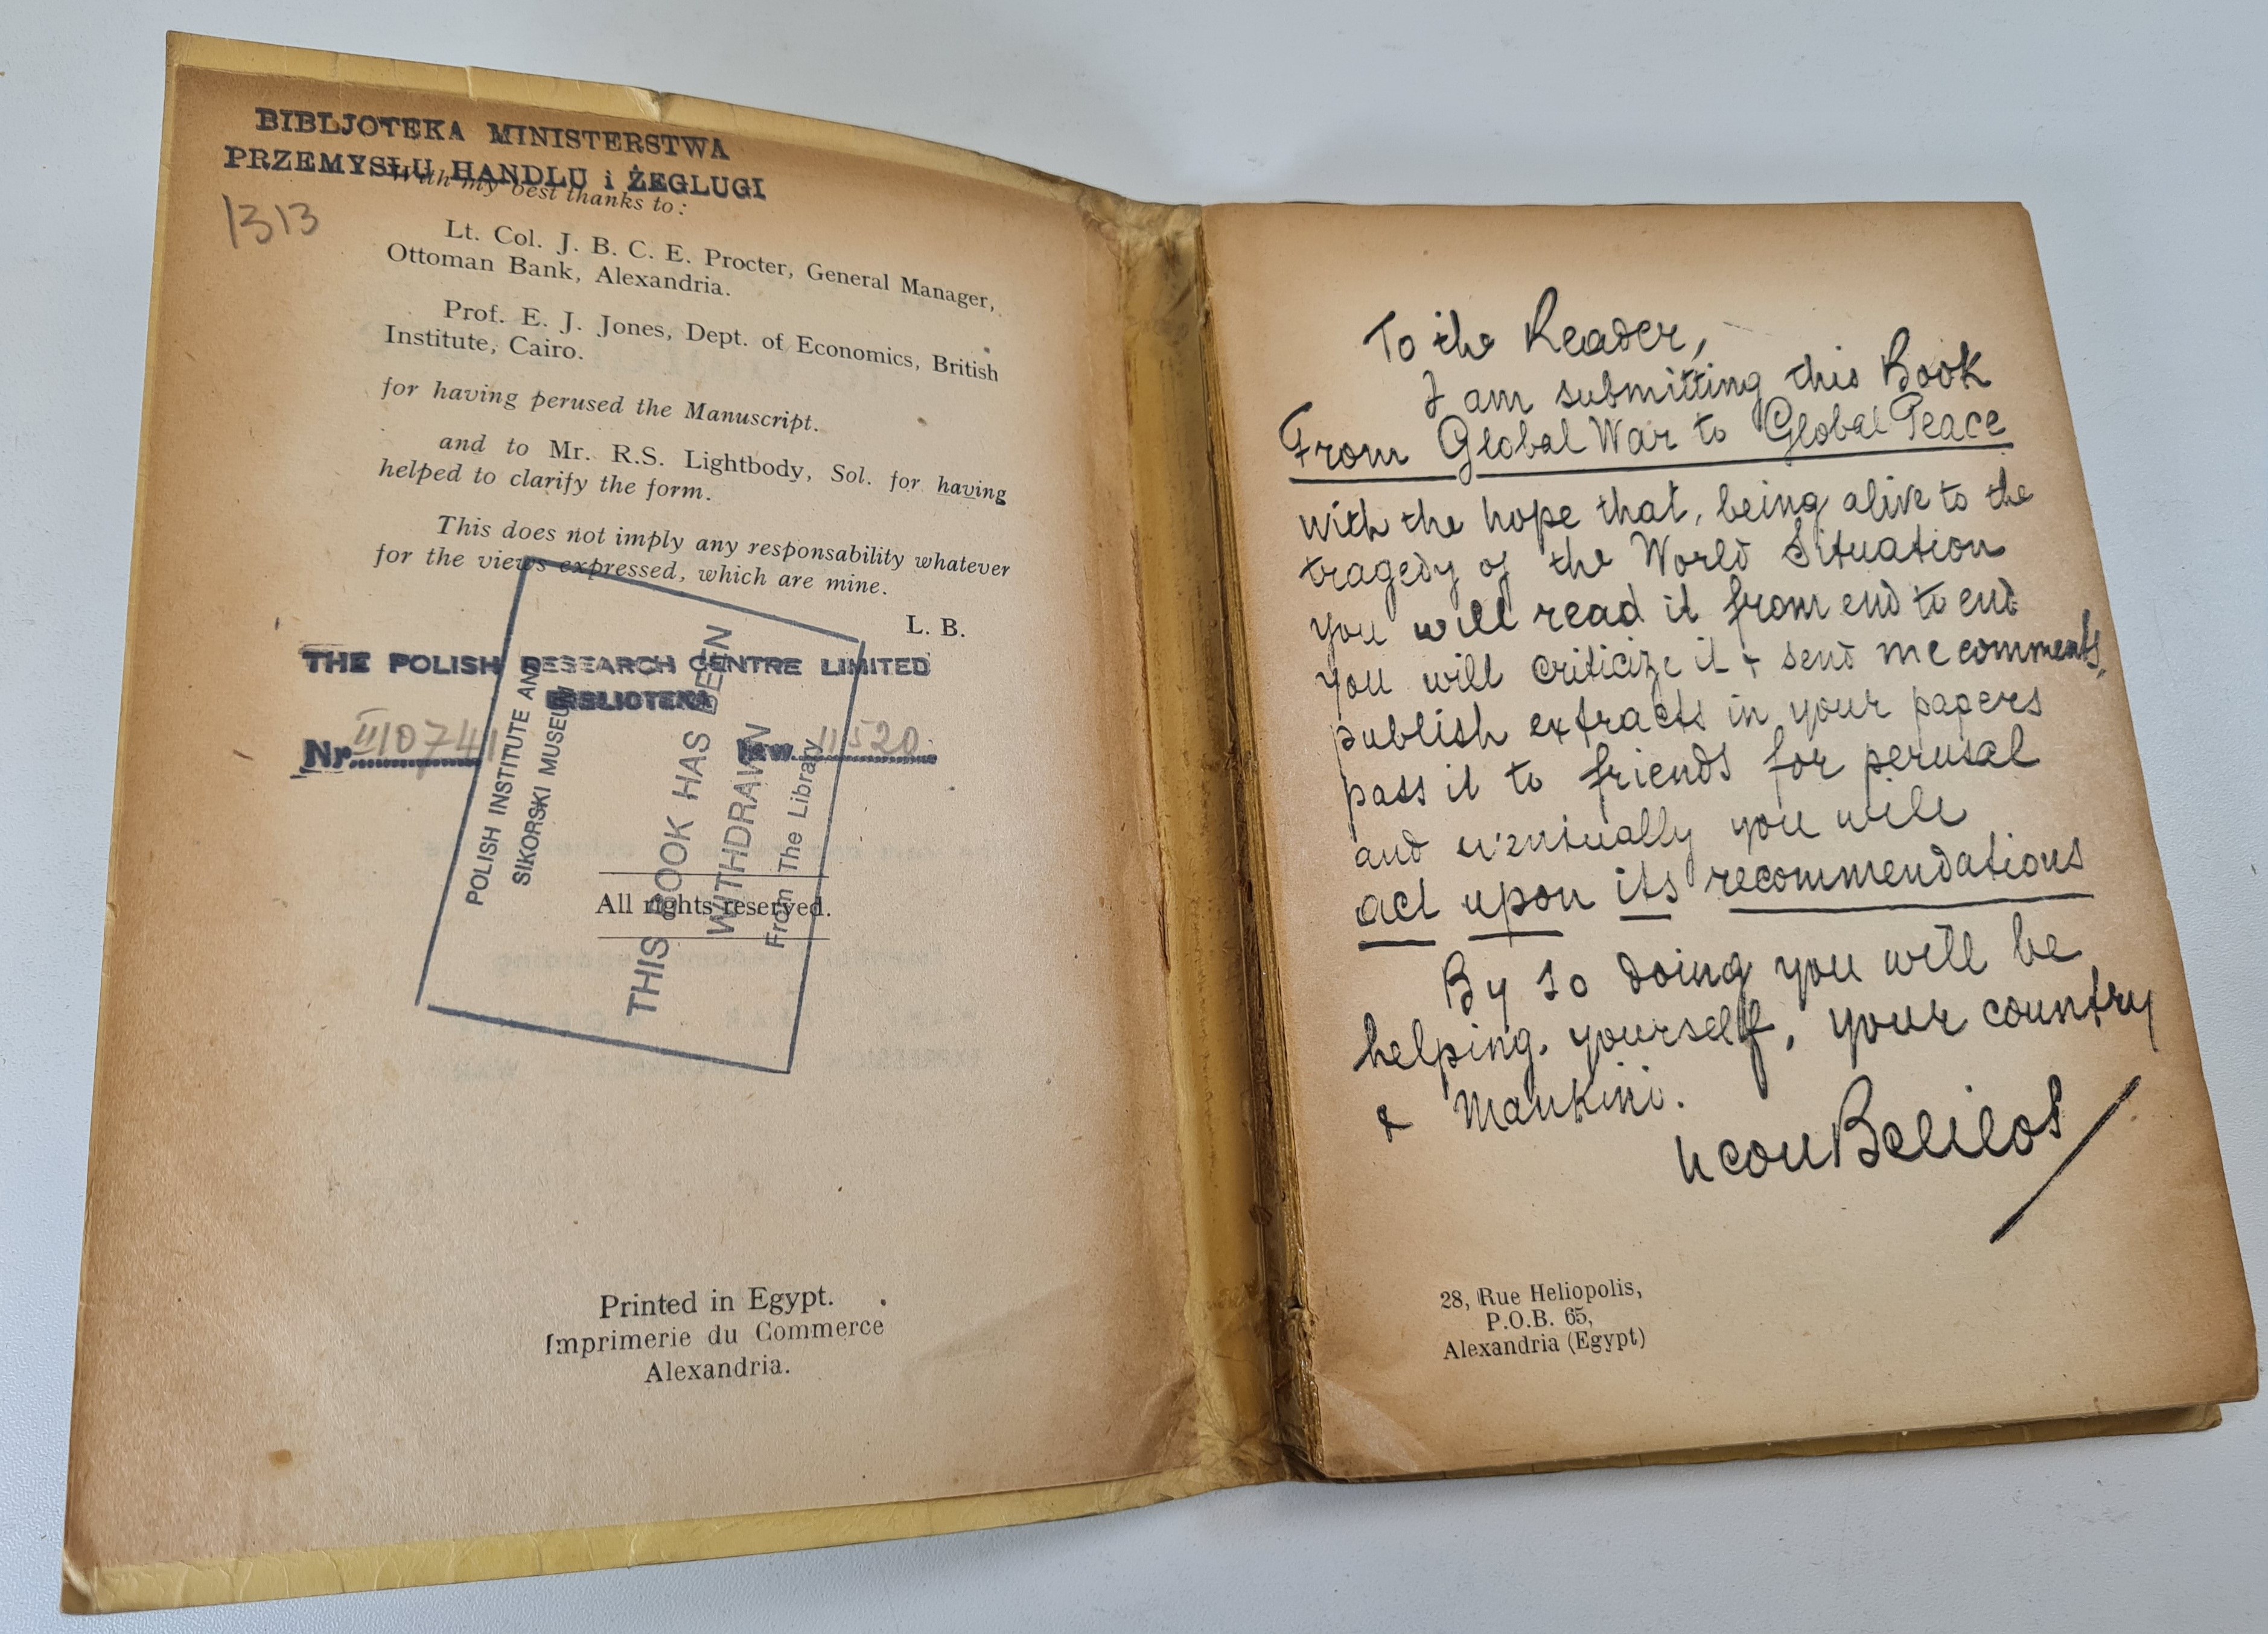 BIBLJOTEKA MINISTERSTWA
PRZEMYSŁU HANDLU i ŻEGLUGI
With my best thanks to:
1313
Lt. Col. J. B. C. E. Procter, General Manager,
Ottoman Bank, Alexandria.
Prof. E. J. Jones, Dept. of Economics, British
Institute, Cairo.
for having perused the Manuscript.
and to Mr. R.S. Lightbody, Sol. for having
helped to clarify the form.
This does not imply any responsability whatever
for the views expressed, which are mine.
L. B.
THE POLISH RESEARCH CENTRE LIMITED
BIBLIOTEKA
Nr. III 10741 Inw. 11520
POLISH INSTITUTE AND
SIKORSKI MUSEUM
THIS BOOK HAS BEEN
WITHDRAWN
From The Library
All rights reserved.
Printed in Egypt.
Imprimerie du Commerce
Alexandria.
To the Reader,
I am submitting this Book
From Global War to Global Peace
with the hope that, being alive to the
tragedy of the World Situation
you will read it from end to end
you will criticize it & send me comments,
publish extracts in your papers
pass it to friends for perusal
and eventually you will
act upon its recommendations
By so doing you will be
helping yourself, your country
& Mankind.
Leon Belilos
28, Rue Heliopolis,
P.O.B. 65,
Alexandria (Egypt)